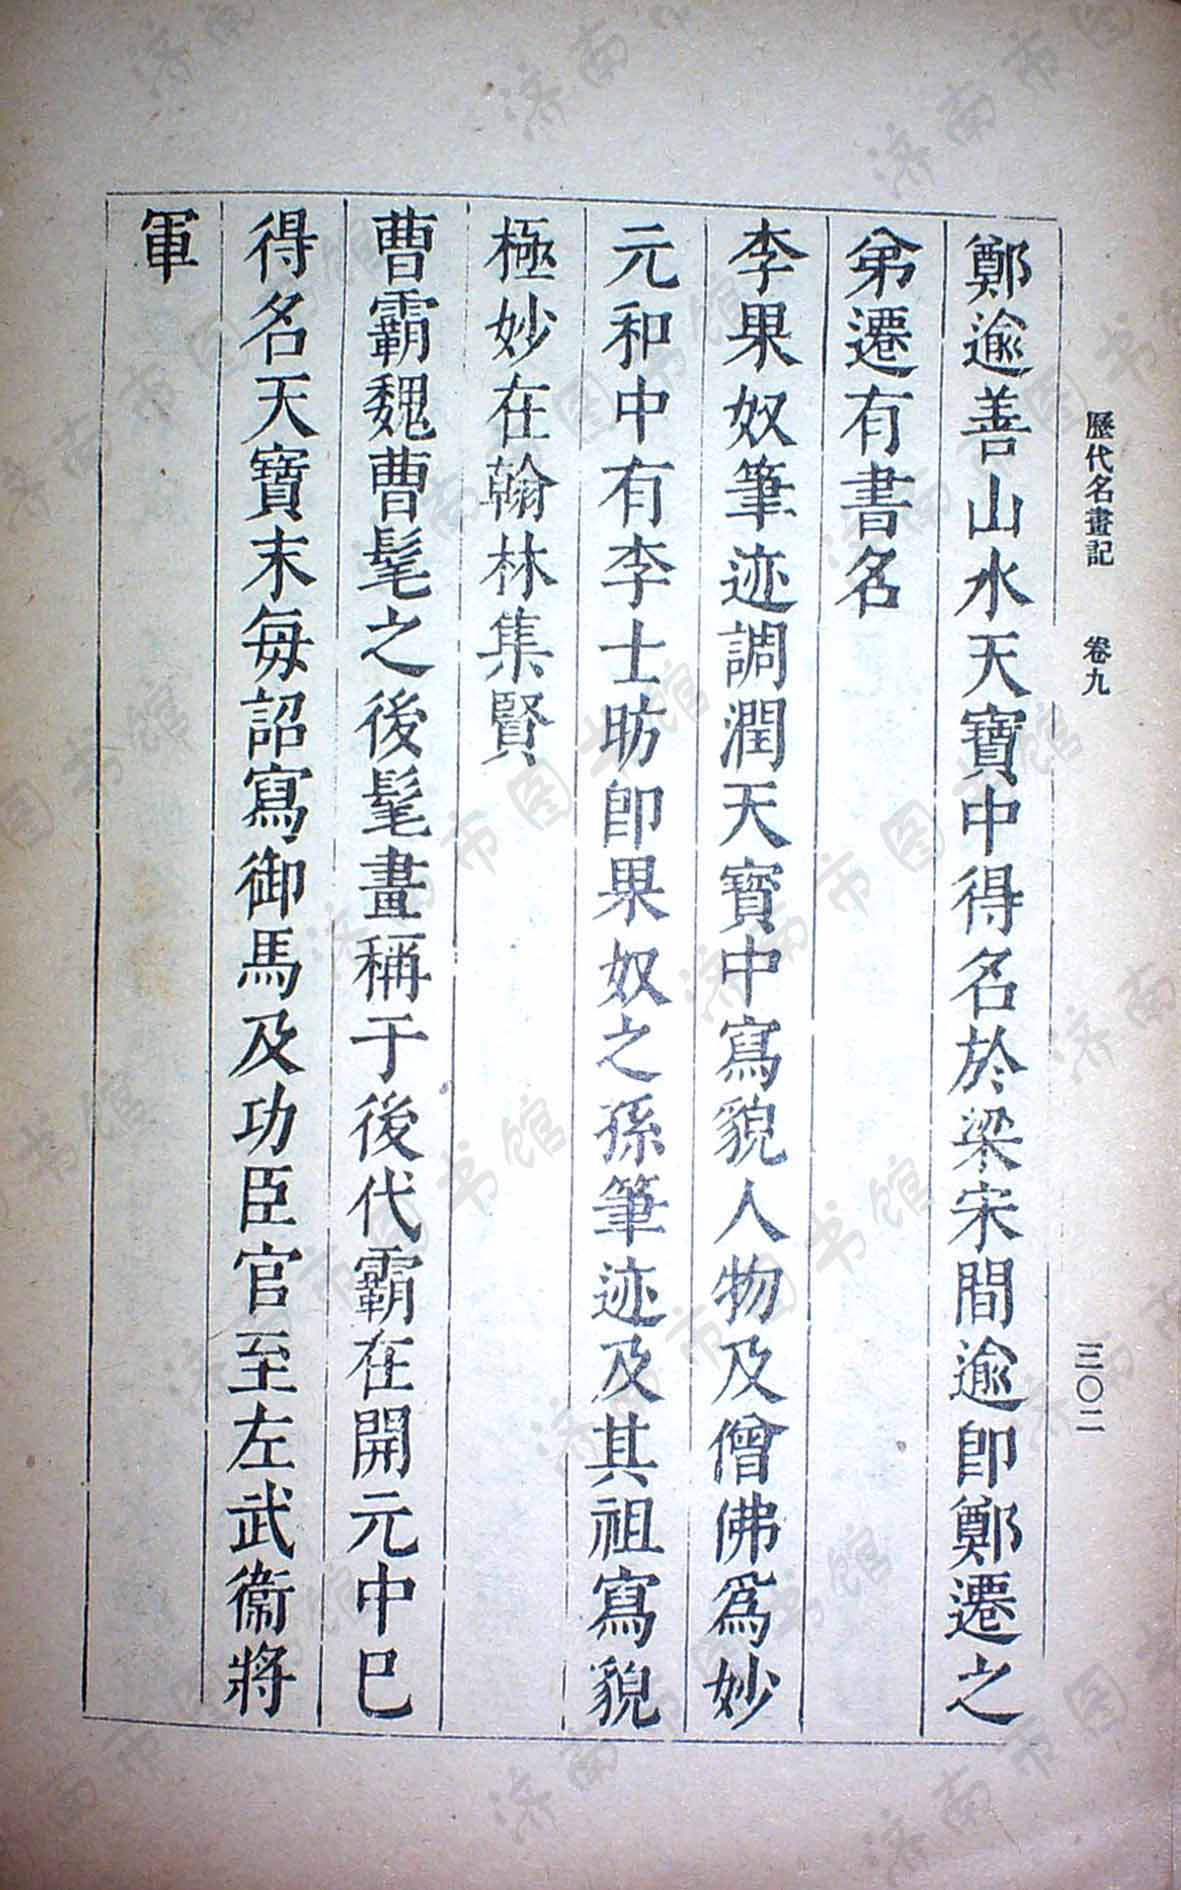 歷代名畫記 卷九 三〇二
鄭逾善山水天寶中得名於梁宋間逾卽鄭遷之
弟遷有書名
李果奴筆迹調潤天寶中寫貌人物及僧佛爲妙
元和中有李士昉卽果奴之孫筆迹及其祖寫貌
極妙在翰林集賢
曹霸魏曹髦之後髦畫稱于後代霸在開元中已
得名天寶末每詔寫御馬及功臣官至左武衞將
軍
济南市图书馆